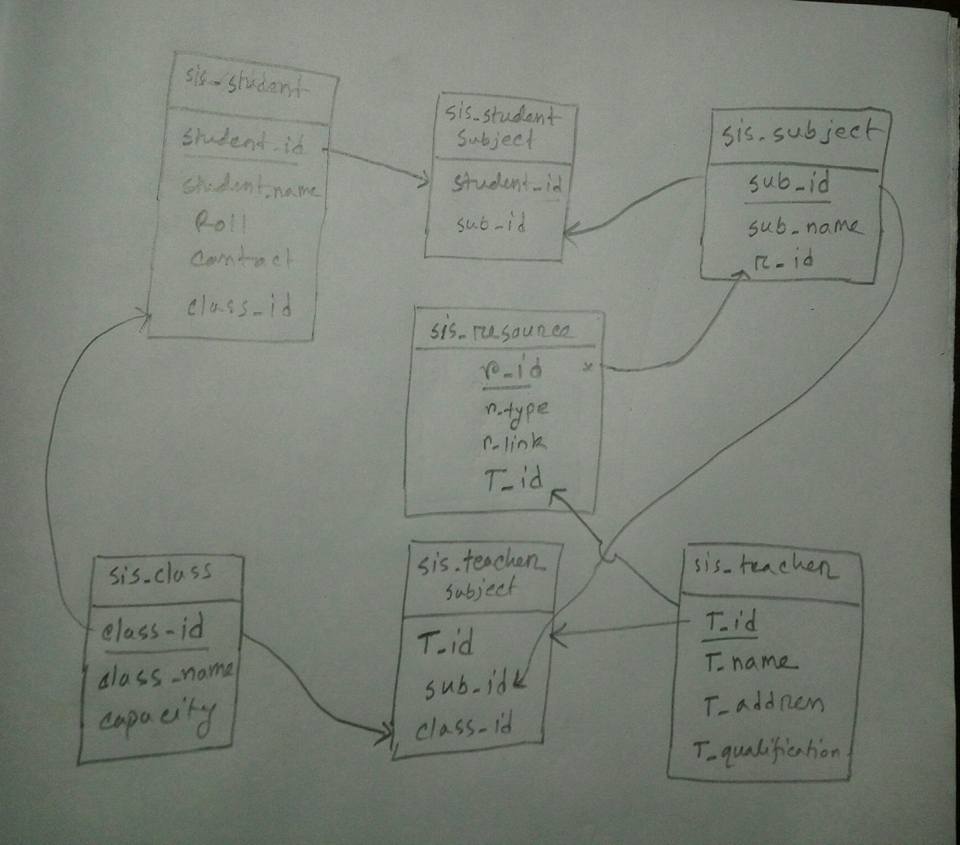 sis_student
student_id
student_name
Roll
contact
class_id
sis_student
subject
student_id
sub_id
sis_subject
sub_id
sub_name
r_id
sis_resource
r_id
r_type
r_link
T_id
sis_class
class_id
class_name
capacity
sis_teacher
subject
T_id
sub_id
class_id
sis_teacher
T_id
T_name
T_address
T_qualification